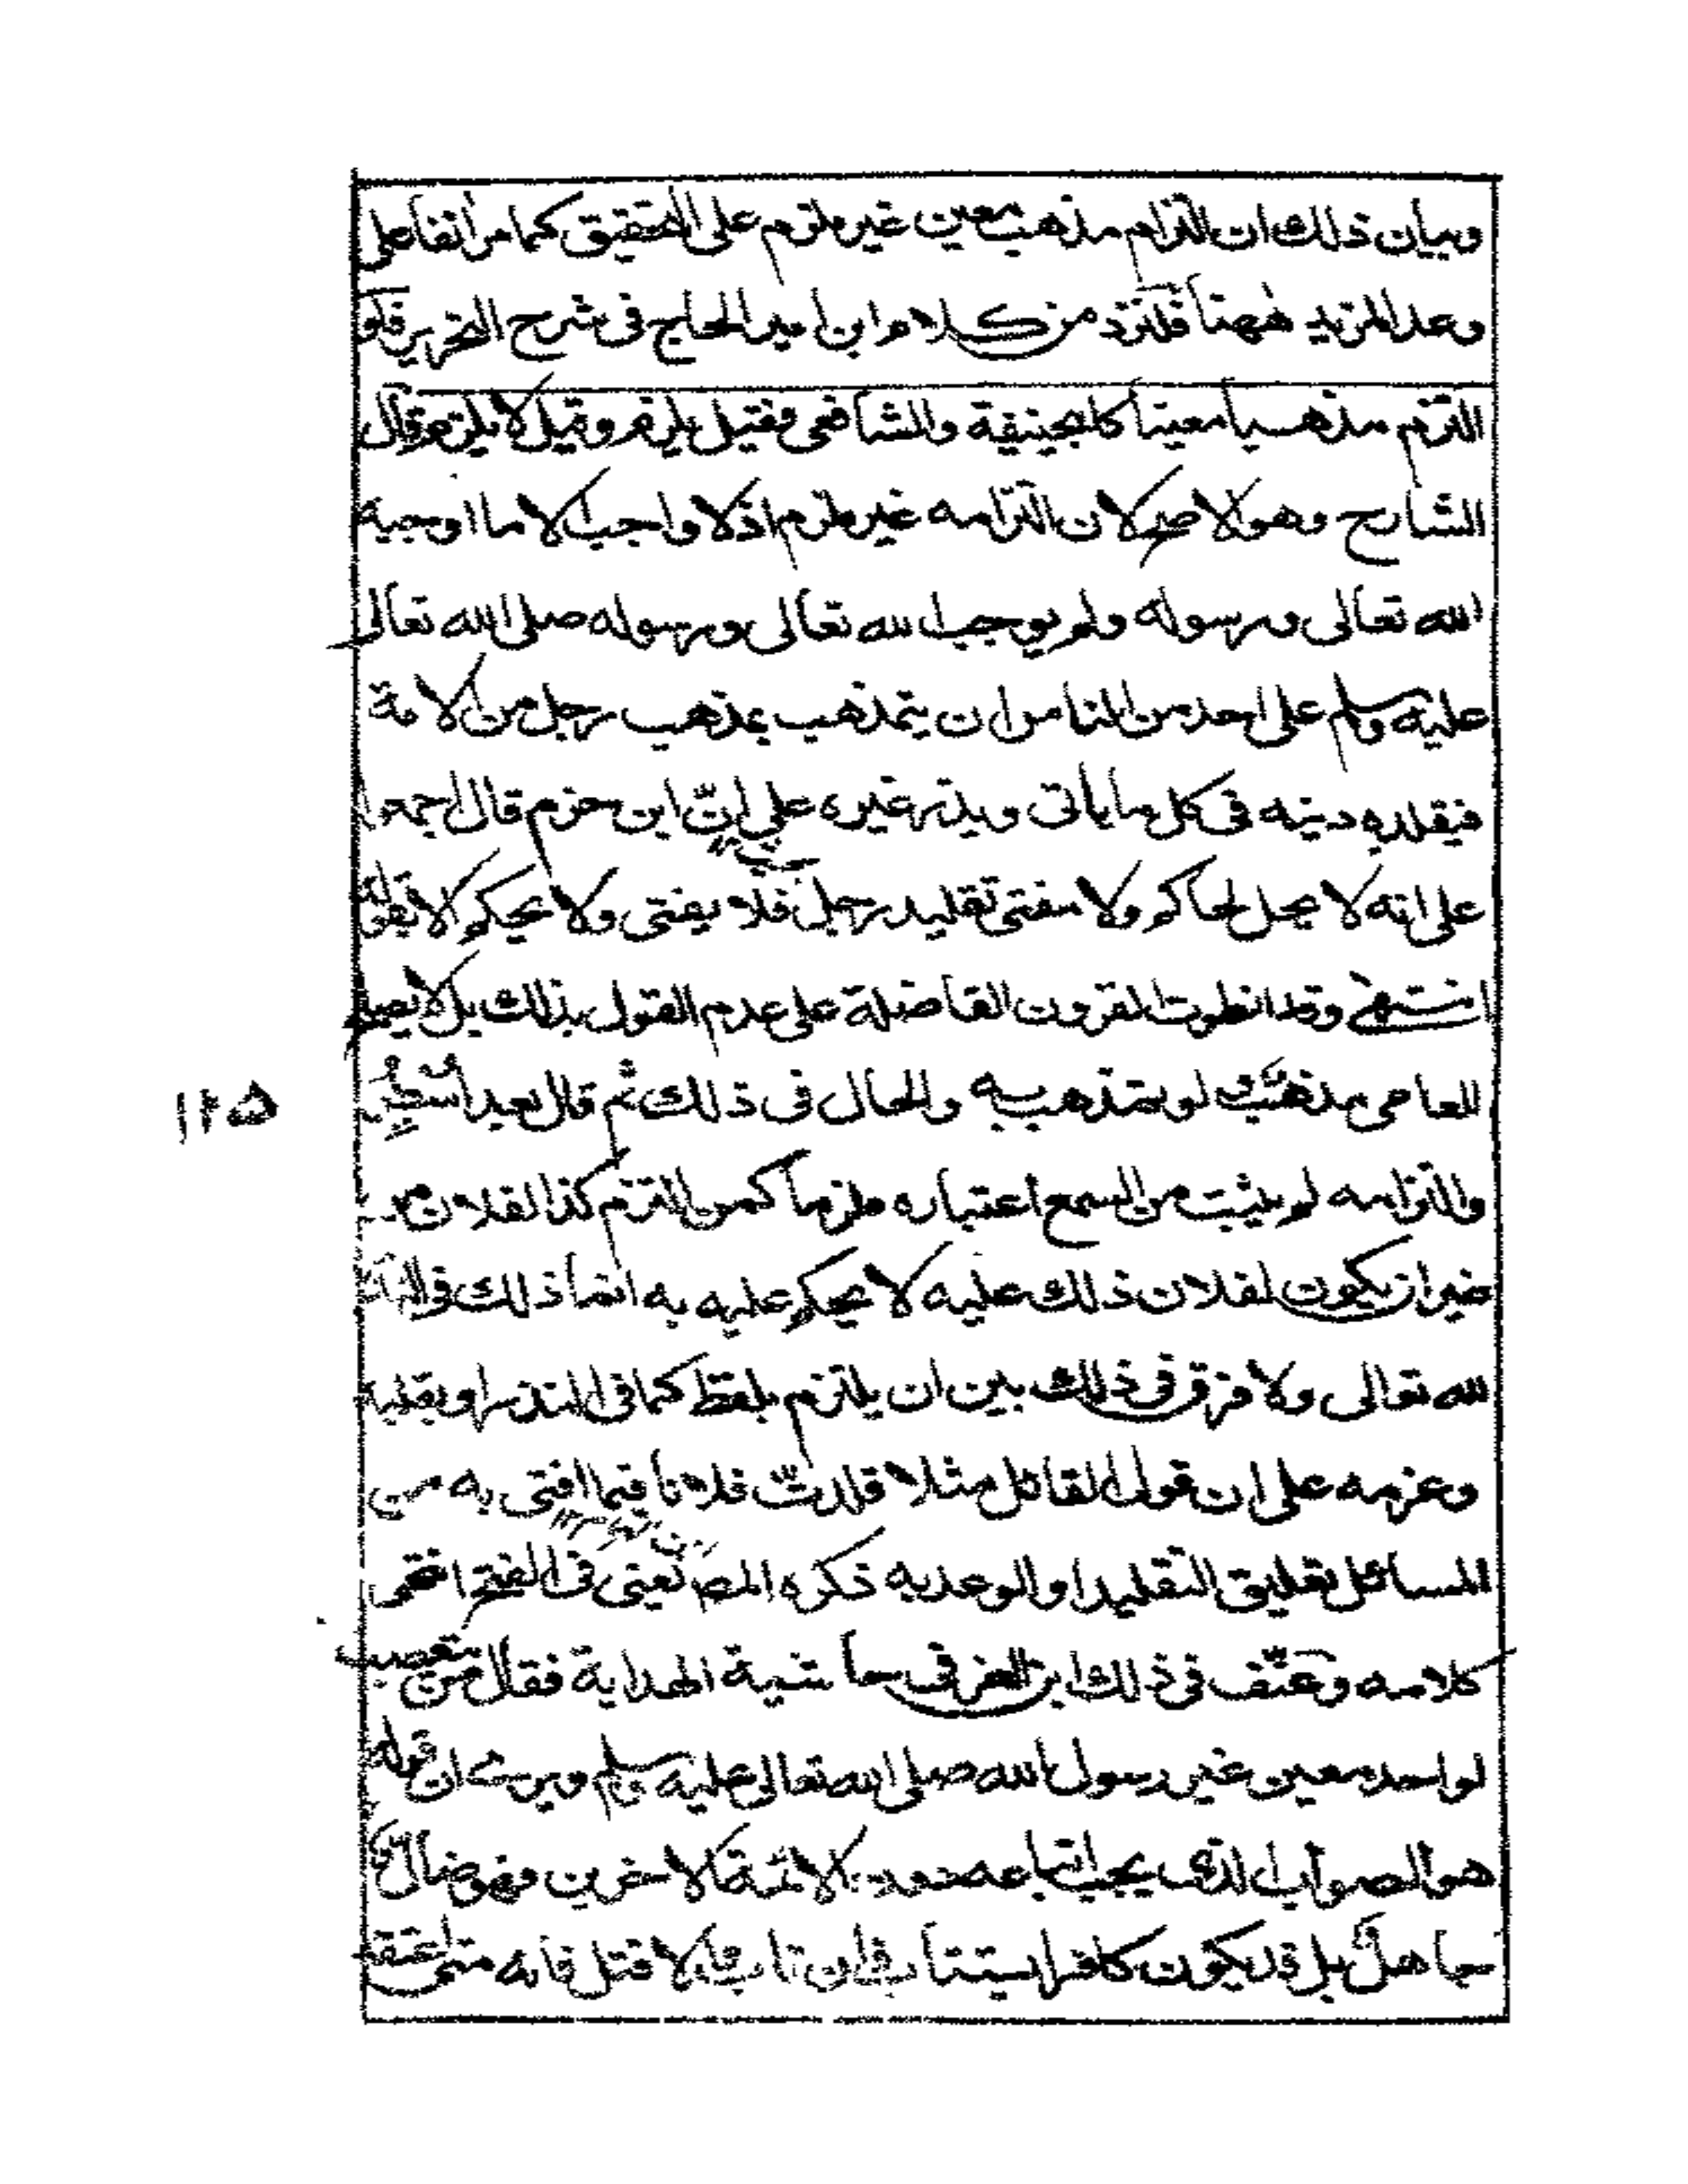 وبيان ذلك ان التزام مذهب معين غير ملزم على التحقيق كما مر انفا على
وعد المزيد ههنا فلنزد من كلام ابن امير الحاج فى شرح التحرير فلو
التزم مذهبا معينا كابيحنيفة والشافعى فقيل يلزم وقيل لا يلزم قال
الشارح وهو الاصح لان التزامه غير ملزم اذ لا واجب الا ما اوجبه
الله تعالى ورسوله ولم يوجب الله تعالى ورسوله صلى الله تعالى
عليه وسلم على احد من الناس ان يتمذهب بمذهب رجل من الامة
فيقلده دينه فى كل ما ياتى ويذر غيره على انّ ابن حزم قال اجمعوا
على انه لا يحل لحاكم ولا مفتى تقليد رجل فلا يفتى ولا يحكم الا بقوله
انتهى وقد انطوت القرون الفاضلة على عدم القول بذلك بل لا يصح
للعامى مذهب لو يتمذهب به والحال فى ذلك ثم قال بعد اسطر
والتزامه لم يثبت من السمع اعتباره ملزما كمن التزم كذا لفلان من
غير ان يكون لفلان ذلك عليه لا يحكم عليه به انما ذلك فى النذر
لله تعالى ولا فرق فى ذلك بين ان يلتزم بلفظ كما فى النذر او بقلبه
وعزمه على ان قول القائل مثلا قلدت فلانا فيما افتى به من
المسائل تعليق التقليد او الوعد به ذكره المص يعنى فى الفتح انتهى
كلامه وعنّف فى ذلك ابن العز فى حاشية الهداية فقال من تعصب
لواحد معين غير رسول الله صلى الله تعالى عليه وسلم ويرى ان قوله
هو الصواب الذى يجب اتباعه دون الائمة الاخرين فهو ضال
جاهل بل قد يكون كافرا يستتاب فان تاب والا قتل فانه متى اعتقد
١٢٥